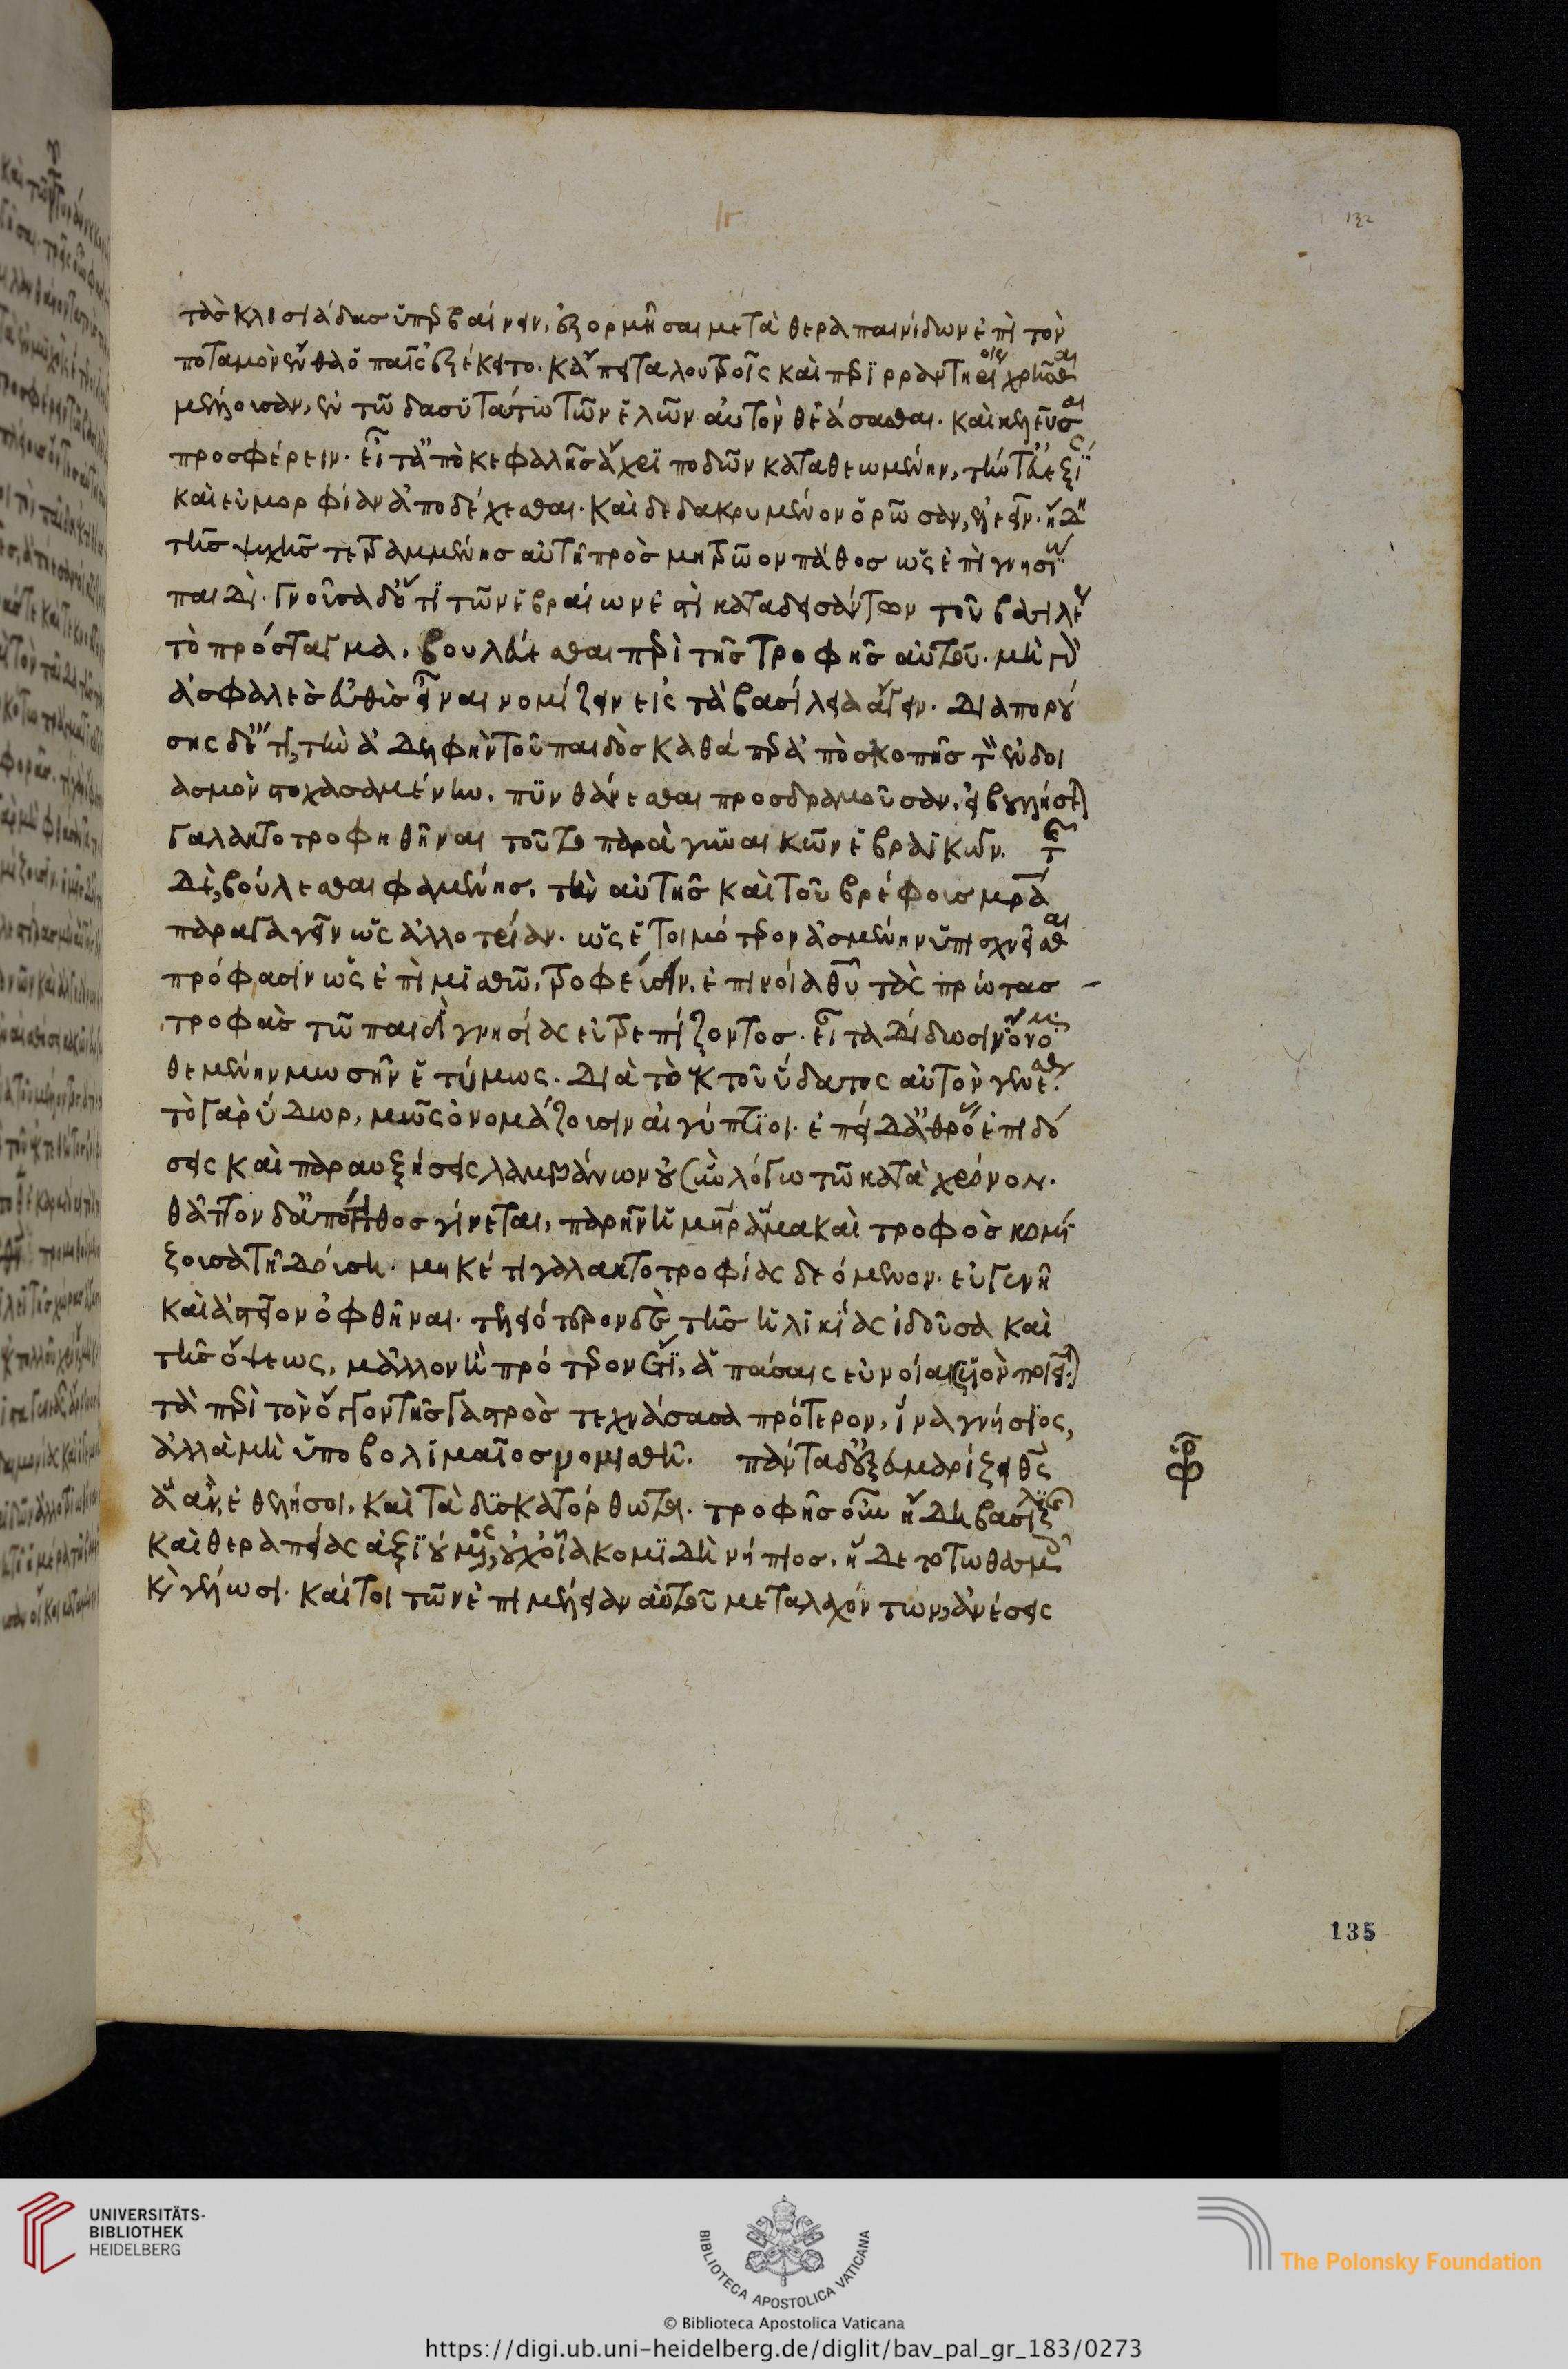 132
τὰς κλισιάδας ὑπερβαίνειν, ἐξορμῆσαι μετὰ θεραπαινίδων ἐπὶ τὸν
ποταμὸν ἔνθα ὁ παῖς ἐξέκειτο. κἄπειτα λουτροῖς καὶ περιρραντηρίοις χρῆσθαι
μέλλουσαν, ἐν τῶ δασυτάτω τῶν ἑλῶν αὐτὸν θεάσασθαι. καὶ κελεῦσαι
προσφέρειν. εἶτα ἀπὸ κεφαλῆς ἄχρι ποδῶν καταθεωμένην, τήν τε
καὶ εὐμορφίαν ἀποδέχεσθαι. καὶ δεδακρυμένον ὁρῶσαν, ἐλεεῖν. ἤδη
τῆς ψυχῆς τετραμμένης αὐτῆ πρὸς μητρῶον πάθος ὡς ἐπὶ γνησίω
παιδί. γνοῦσα δ' ὅτι τῶν ἑβραίων ἐστὶ καταδεισάντων τοῦ βασιλέως
τὸ πρόσταγμα, βουλεύεσθαι περὶ τῆς τροφῆς αὐτοῦ. μὴ γὰρ
ἀσφαλὲς εὐθὺς εἶναι νομίζειν εἰς τὰ βασίλεια ἄγειν. διαπορού
σης δ' ἔτι, τὴν ἀδελφὴν τοῦ παιδὸς καθάπερ ἀπὸ σκοπῆς τὸν ἐνδοι
ασμὸν στοχασαμένην, πυνθάνεσθαι προσδραμοῦσαν, εἰ βουλήσεται
γαλακτοτροφηθῆναι τοῦτο παρὰ γυναικῶν ἑβραϊκῶν. τῆς
δὲ, βούλεσθαι φαμένης, τὴν αὐτῆς καὶ τοῦ βρέφους μητέρα
παραγαγεῖν ὡς ἀλλοτρίαν. ὡς ἑτοιμότερον ἀσμένην ὑπισχνεῖσθαι
πρόφασιν ὡς ἐπὶ μισθῶ, τροφεύσειν, ἐπινοία θεοῦ τὰς πρώτας
τροφὰς τῶ παιδὶ γνησίας εὐτρεπίζοντος. εἶτα δίδωσιν ὄνομα
θεμένην μωσῆν ἐτύμως. διὰ τὸ ἐκ τοῦ ὕδατος αὐτὸν
τὸ γὰρ ὕδωρ, μῶς ὀνομάζουσιν αἰγύπτιοι. ἐπεὶ δ' ἀθρόους ἐπιδό
σεις καὶ παραυξήσεις λαμβάνων οὐ σὺν λόγω τῶ κατὰ χρόνον.
θᾶττον δ' ἀπότιτθος γίνεται, παρῆν ἡ μήτηρ ἅμα καὶ τροφὸς κομί
ζουσα τῆ δούση. μηκέτι γαλακτοτροφίας δεόμενον. εὐγενῆ
καὶ ἀστεῖον ὀφθῆναι. τελειότερον δὲ τῆς ἡλικίας ἰδοῦσα καὶ
τῆς ὄψεως, μᾶλλον ἢ πρότερον ἔτι, πάσαις εὐνοίαις υἱὸν ποιεῖται
τὰ περὶ τὸν ὄγκον τῆς γαστρὸς τεχνάσασα πρότερον, ἵνα γνήσιος,
ἀλλὰ μὴ ὑποβολιμαῖος νομισθῆ. πάντα δ' ἐξευμαρίζει θεὸς
ἃ ἂν, ἐθελήσοι, καὶ τὰ δυσκατόρθωτα. τροφῆς οὖν ἤδη βασιλικῆς
καὶ θεραπείας ἀξιούμενος, οὐχ οἷα κομιδῆ νήπιος, ἥδετο τωθασμοῖς
καὶ γέλωσι. καίτοι τῶν ἐπιμέλειαν αὐτοῦ μεταλαχόντων, ἀνέσεις
135
UNIVERSITÄTS-
BIBLIOTHEK
HEIDELBERG
BIBLIOTECA APOSTOLICA VATICANA
The Polonsky Foundation
© Biblioteca Apostolica Vaticana
https://digi.ub.uni-heidelberg.de/diglit/bav_pal_gr_183/0273